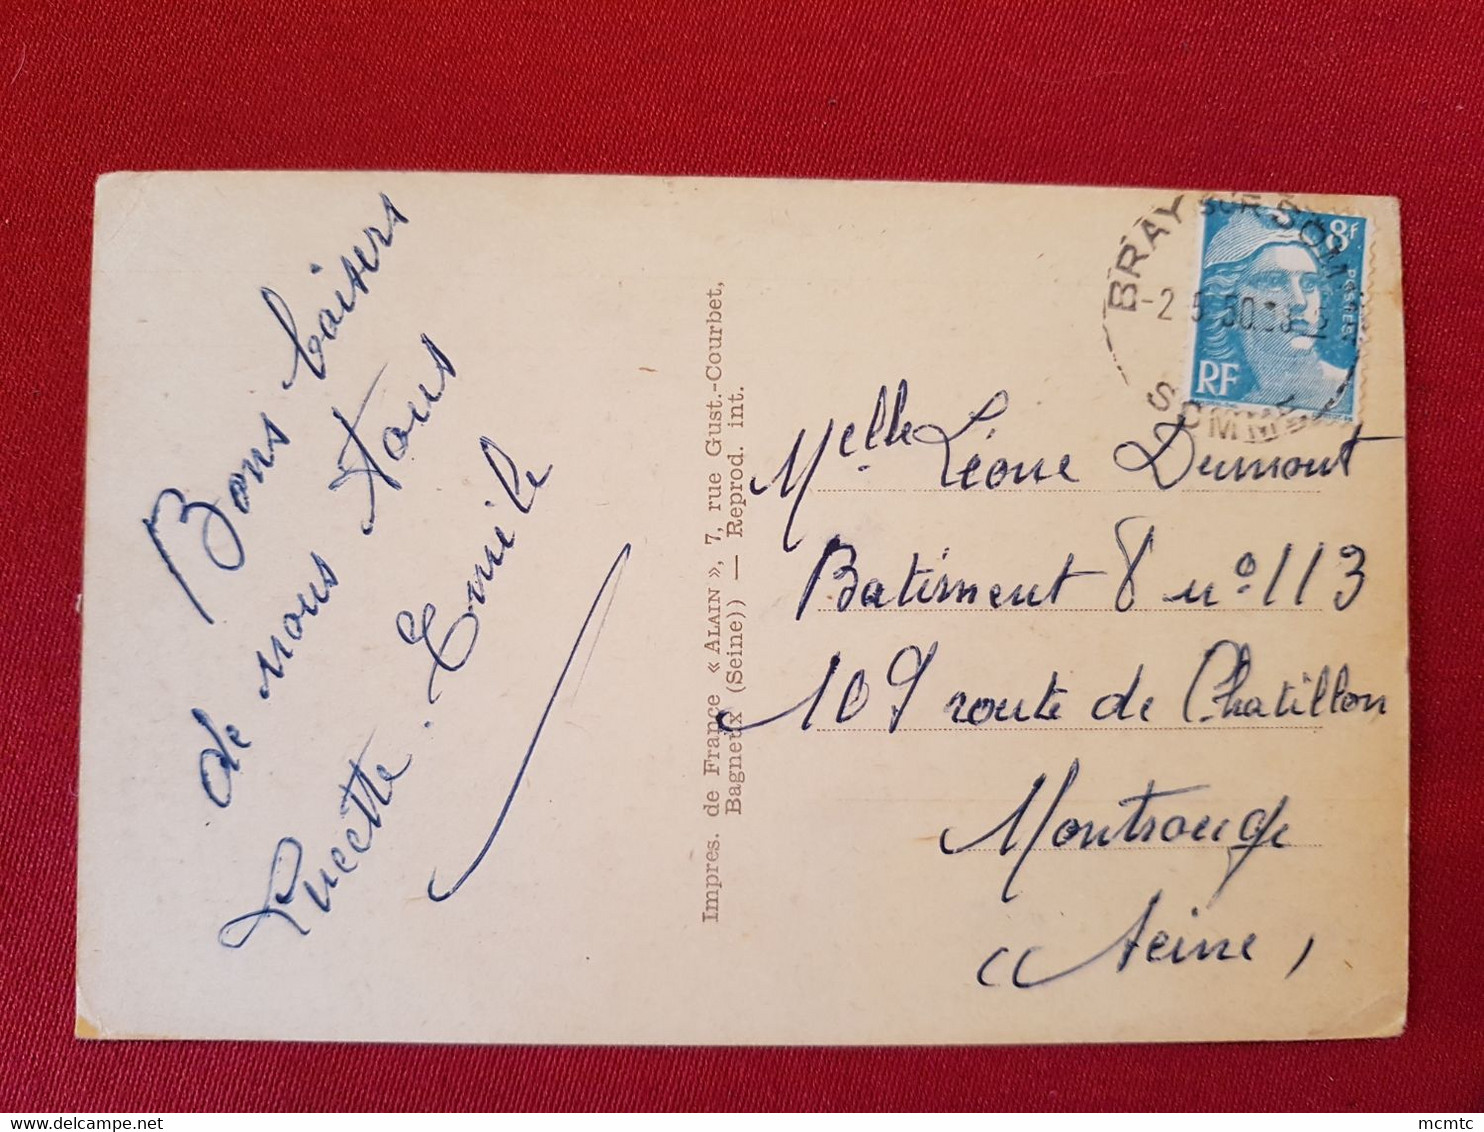 Bons baisers
de nous tous
Lucette. Emile
Impres. de France « ALAIN », 7, rue Gust.-Courbet,
Bagneux (Seine)) — Reprod. int.
BRAY SUR SOMME
-2 5 50
SOMME
8F
POSTES
RF
Melle Léone Dumont
Batiment 8 nº 113
109 route de Chatillon
Montrouge
(Seine)
mcmtc